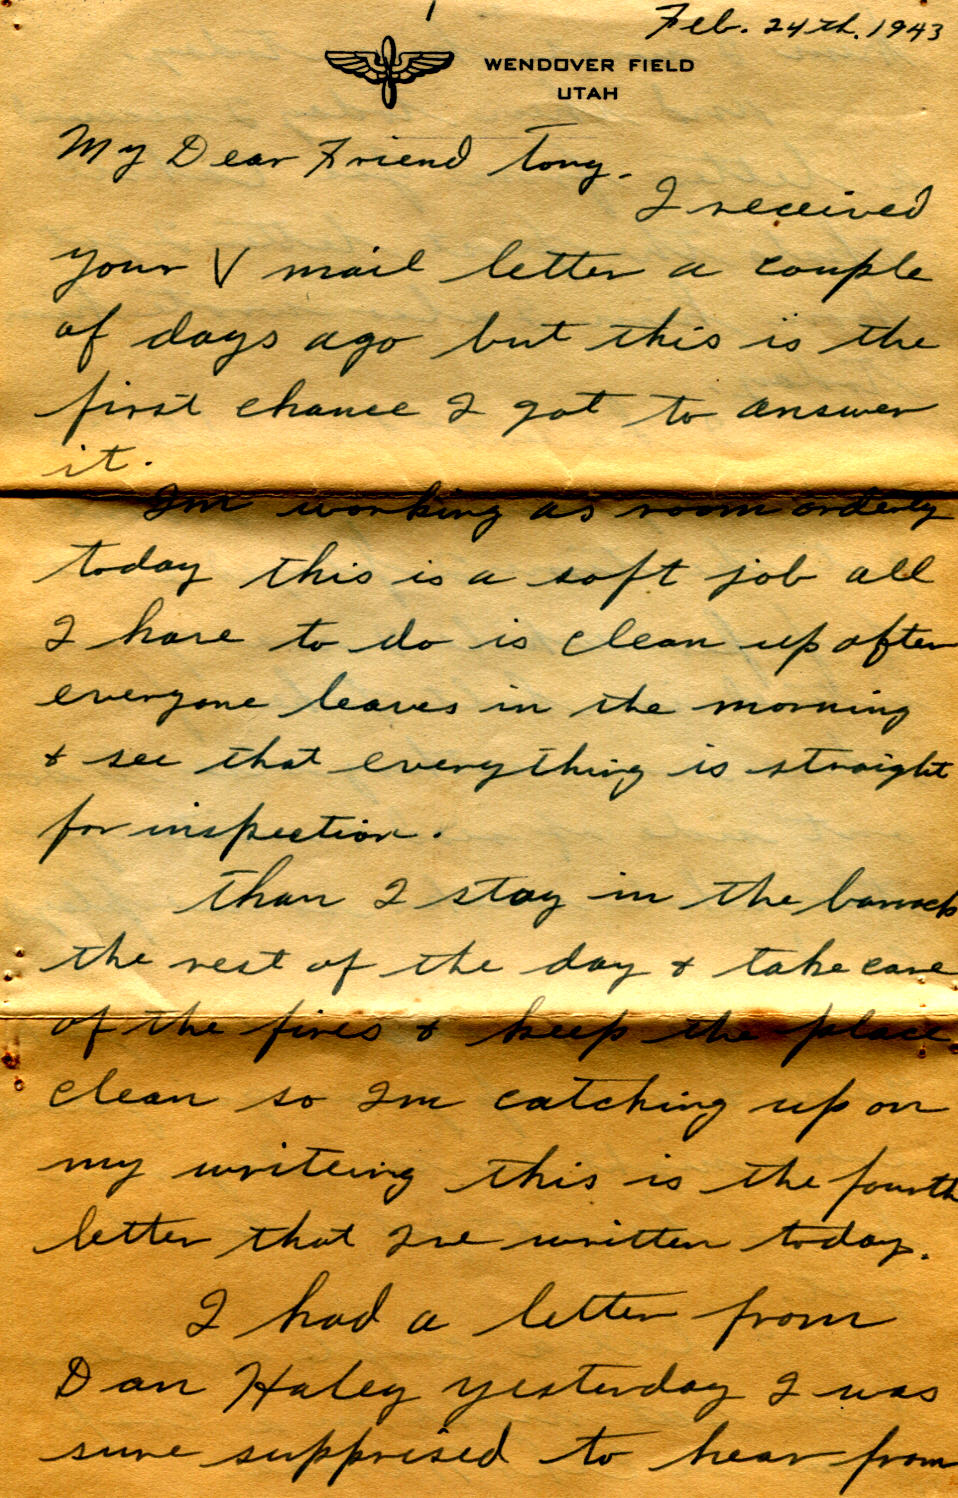 1
Feb. 24th. 1943
WENDOVER FIELD
UTAH
My Dear Friend Tony.
I received
your V mail letter a couple
of days ago but this is the
first chance I got to answer
it.
Im working as room orderly
today this is a soft job all
I have to do is clean up after
everyone leaves in the morning
& see that everything is straight
for inspection.
than I stay in the barracks
the rest of the day & take care
of the fires & keep the place
clean so Im catching up on
my writeing this is the fourth
letter that Ive written today.
I had a letter from
Dan Haley yesterday I was
sure supprised to hear from